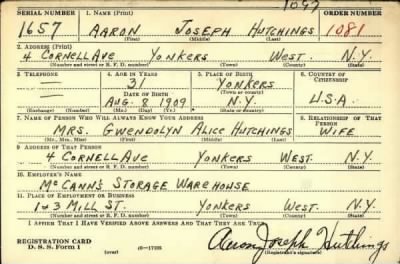 1097
SERIAL NUMBER 1. NAME (Print) ORDER NUMBER
1657 AARON JOSEPH HUTCHINGS 1081
(First) (Middle) (Last)
2. ADDRESS (Print)
4 CORNELL AVE YONKERS WEST. N.Y.
(Number and street or R. F. D. number) (Town) (County) (State)
3. TELEPHONE 4. AGE IN YEARS 5. PLACE OF BIRTH 6. COUNTRY OF CITIZENSHIP
— 31 YONKERS
DATE OF BIRTH (Town or county)
— AUG. 8 1909 N.Y. U.S.A.
(Exchange) (Number) (Mo.) (Day) (Yr.) (State or country)
7. NAME OF PERSON WHO WILL ALWAYS KNOW YOUR ADDRESS 8. RELATIONSHIP OF THAT PERSON
MRS. GWENDOLYN ALICE HUTCHINGS WIFE
(Mr., Mrs., Miss) (First) (Middle) (Last)
9. ADDRESS OF THAT PERSON
4 CORNELL AVE YONKERS WEST. N.Y.
(Number and street or R. F. D. number) (Town) (County) (State)
10. EMPLOYER'S NAME
McCANN'S STORAGE WAREHOUSE
11. PLACE OF EMPLOYMENT OR BUSINESS
1+3 MILL ST. YONKERS WEST. N.Y.
(Number and street or R. F. D. number) (Town) (County) (State)
I AFFIRM THAT I HAVE VERIFIED ABOVE ANSWERS AND THAT THEY ARE TRUE.
REGISTRATION CARD
D. S. S. Form 1 (over) Aaron Joseph Hutchings
(Registrant's signature)